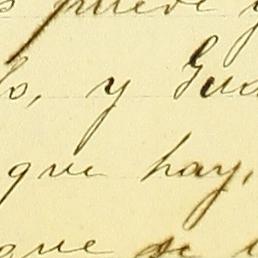 puede y
lo, y Gua
que hay,
que se